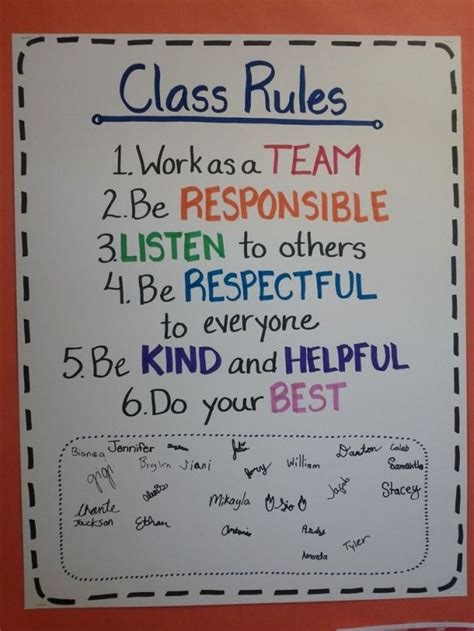 Class Rules
1. Work as a TEAM
2. Be RESPONSIBLE
3. LISTEN to others
4. Be RESPECTFUL
to everyone
5. Be KIND and HELPFUL
6. Do your BEST
Jennifer Daxton Caleb
Bianca Samantha
gigi Jiani William
Stacey
Mikayla Jacob
Chante
Jackson Ethan
Tyler
Amanda